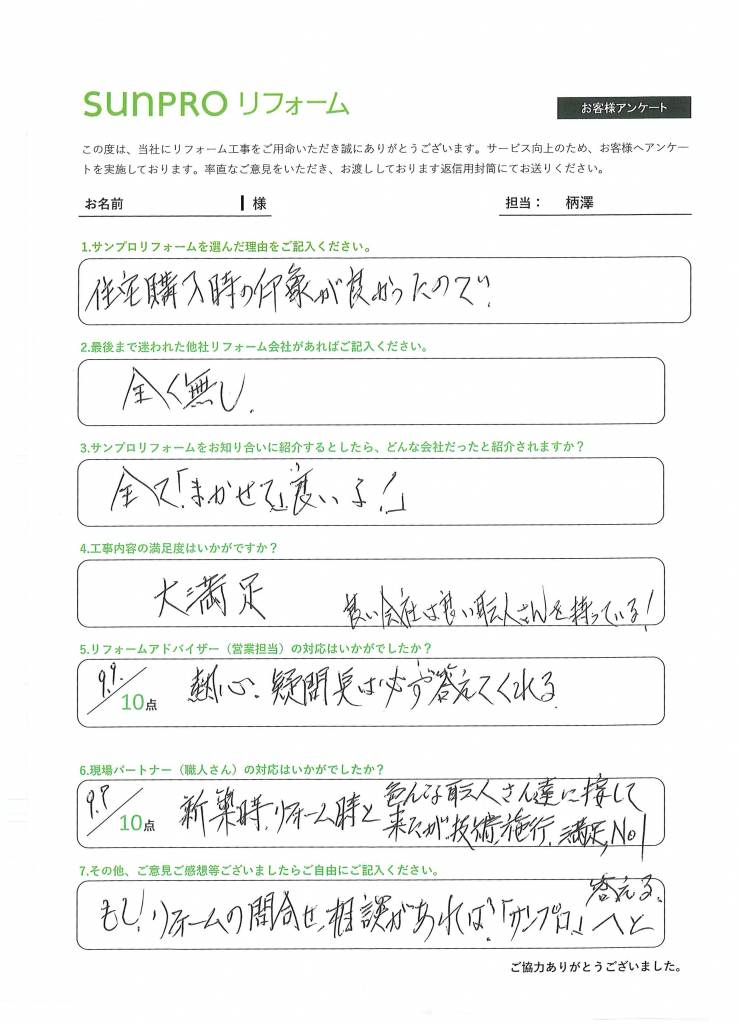 SUNPRO リフォーム
お客様アンケート
この度は、当社にリフォーム工事をご用命いただき誠にありがとうございます。サービス向上のため、お客様へアンケー
トを実施しております。率直なご意見をいただき、お渡ししております返信用封筒にてお送りください。
お名前 様 担当： 柄澤
1.サンプロリフォームを選んだ理由をご記入ください。
住宅購入時の印象が良かったので。
2.最後まで迷われた他社リフォーム会社があればご記入ください。
全く無し.
3.サンプロリフォームをお知り合いに紹介するとしたら、どんな会社だったと紹介されますか？
全て「まかせて」良いよ!」
4.工事内容の満足度はいかがですか？
大満足
良い会社は良い職人さんを持っている!
5.リフォームアドバイザー（営業担当）の対応はいかがでしたか？
9.9. 10点
熱心、疑問点は必ず答えてくれる.
6.現場パートナー（職人さん）の対応はいかがでしたか？
9.9 10点
新築時,リフォーム時と 色んな職人さん達に接して
来たが,技術,施行,満足,No1
7.その他、ご意見ご感想等ございましたらご自由にご記入ください。
もし,リフォームの問合せ,相談があれば,「サンプロ」へと
答える.
ご協力ありがとうございました。